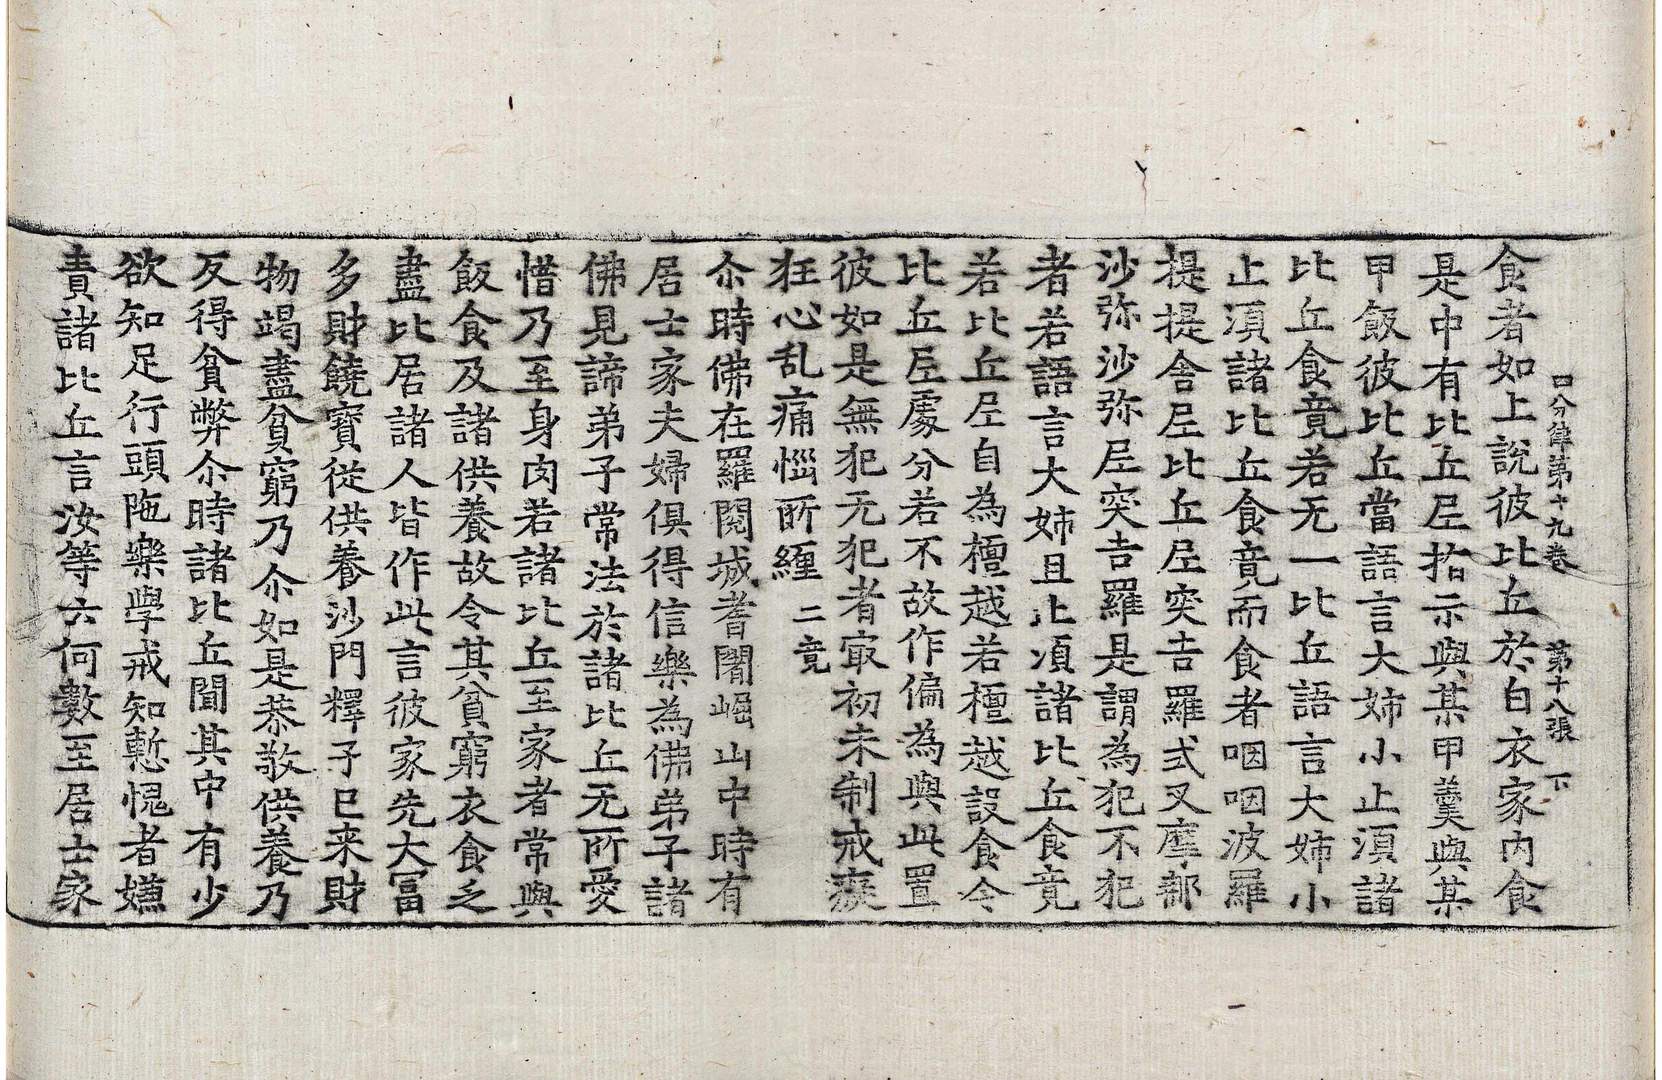 口分律第十九卷 第十八張 下
食者如上說彼比丘於白衣家內食
是中有比丘尼指示與某甲羹與某
甲飯彼比丘當語言大姊小止須諸
比丘食竟若无一比丘語言大姊小
止須諸比丘食竟而食者咽咽波羅
提提舍尼比丘尼突吉羅式叉摩那
沙弥沙弥尼突吉羅是謂為犯不犯
者若語言大姊且止須諸比丘食竟
若比丘尼自為檀越若檀越設食令
比丘尼處分若不故作偏為與此置
彼如是無犯无犯者㝡初未制戒癡
狂心乱痛惱所纏 二竟
尒時佛在羅閱城耆闍崛山中時有
居士家夫婦俱得信樂為佛弟子諸
佛見諦弟子常法於諸比丘无所愛
惜乃至身肉若諸比丘至家者常與
飯食及諸供養故令其貧窮衣食乏
盡比居諸人皆作此言彼家先大冨
多財饒寶從供養沙門釋子已来財
物竭盡貧窮乃尒如是恭敬供養乃
反得貧弊尒時諸比丘聞其中有少
欲知足行頭陁樂學戒知慙愧者嫌
責諸比丘言汝等云何數至居士家